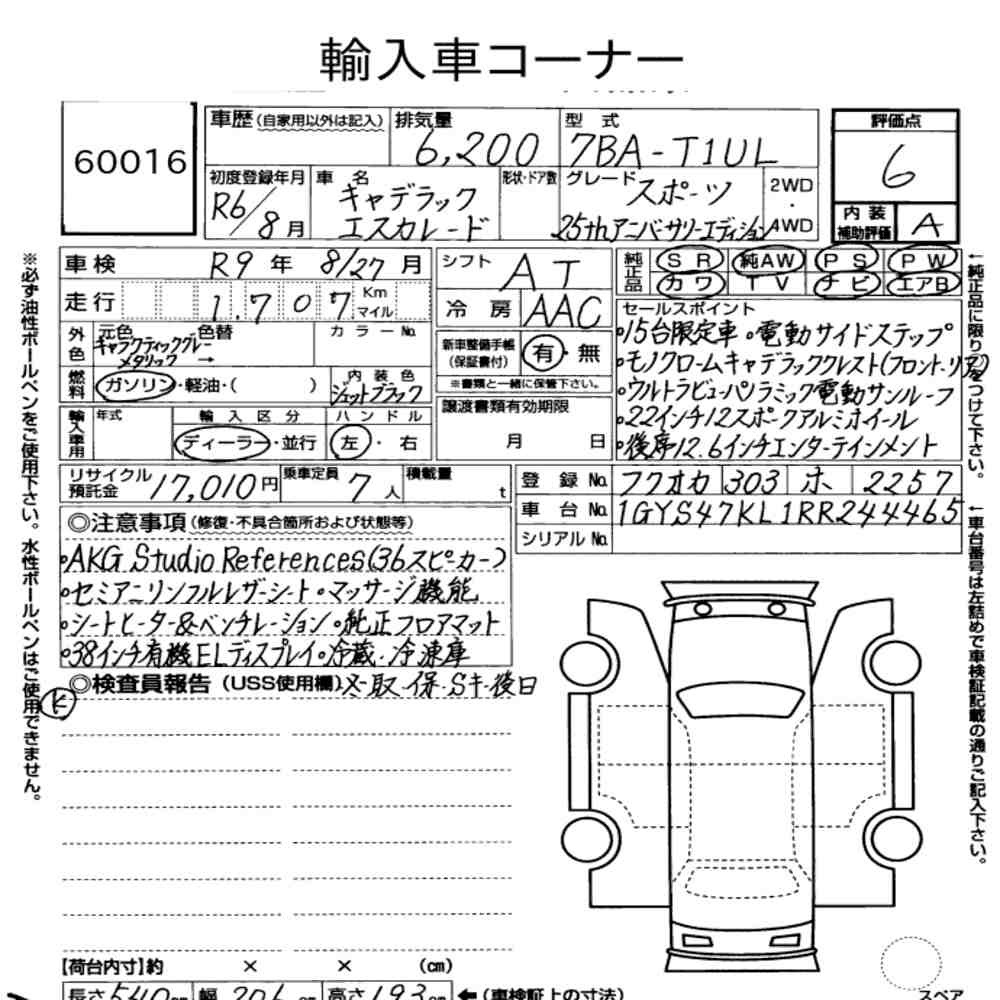 輸入車コーナー
60016
車歴 (自家用以外は記入) 排気量 6,200 型式 7BA-T1UL
評価点 6
初度登録年月 R6/8月 車名 キャデラック エスカレード 形状・ドア数 グレード スポーツ 25thアニバーサリーエディション 2WD・4WD
内装補助評価 A
車検 R9年 8/27月 シフト AT
純正品 SR 純AW PS PW
カワ TV ナビ エアB
走行 1,707 Km マイル 冷房 AAC
セールスポイント
・15台限定車・電動サイドステップ
・モノクロームキャデラッククレスト(フロント・リア)
・ウルトラビューパノラミック電動サンルーフ
・22インチ12スポークアルミホイール
・後席12.6インチエンターテインメント
外色 元色 ギャラクティックグレーメタリック → 色替 カラーNo.
新車整備手帳(保証書付) 有・無
※書類と一緒に保管下さい。
燃料 ガソリン・軽油・( ) 内装色 ジェットブラック
譲渡書類有効期限 月 日
輸入車用 年式 輸入区分 ディーラー・並行 ハンドル 左・右
リサイクル預託金 17,010円 乗車定員 7人 積載量 t
登録No. フクオカ 303 ホ 2257
車台No. 1GYS47KL1RR244465
シリアルNo.
◎注意事項 (修復・不具合箇所および状態等)
・AKG Studio References(36スピーカー)
・セミアニリンフルレザーシート・マッサージ機能
・シートヒーター&ベンチレーション・純正フロアマット
・38インチ有機ELディスプレイ・冷蔵・冷凍庫
◎検査員報告 (USS使用欄) 又・取・保・Sキ・後日
【荷台内寸】約 × × (cm)
長さ540cm 幅206cm 高さ193cm ←(車検証上の寸法)
スペア
※必ず油性ボールペンをご使用下さい。水性ボールペンはご使用できません。
←純正品に限り○をつけて下さい。
←車台番号は左詰めで車検証記載の通りご記入下さい。